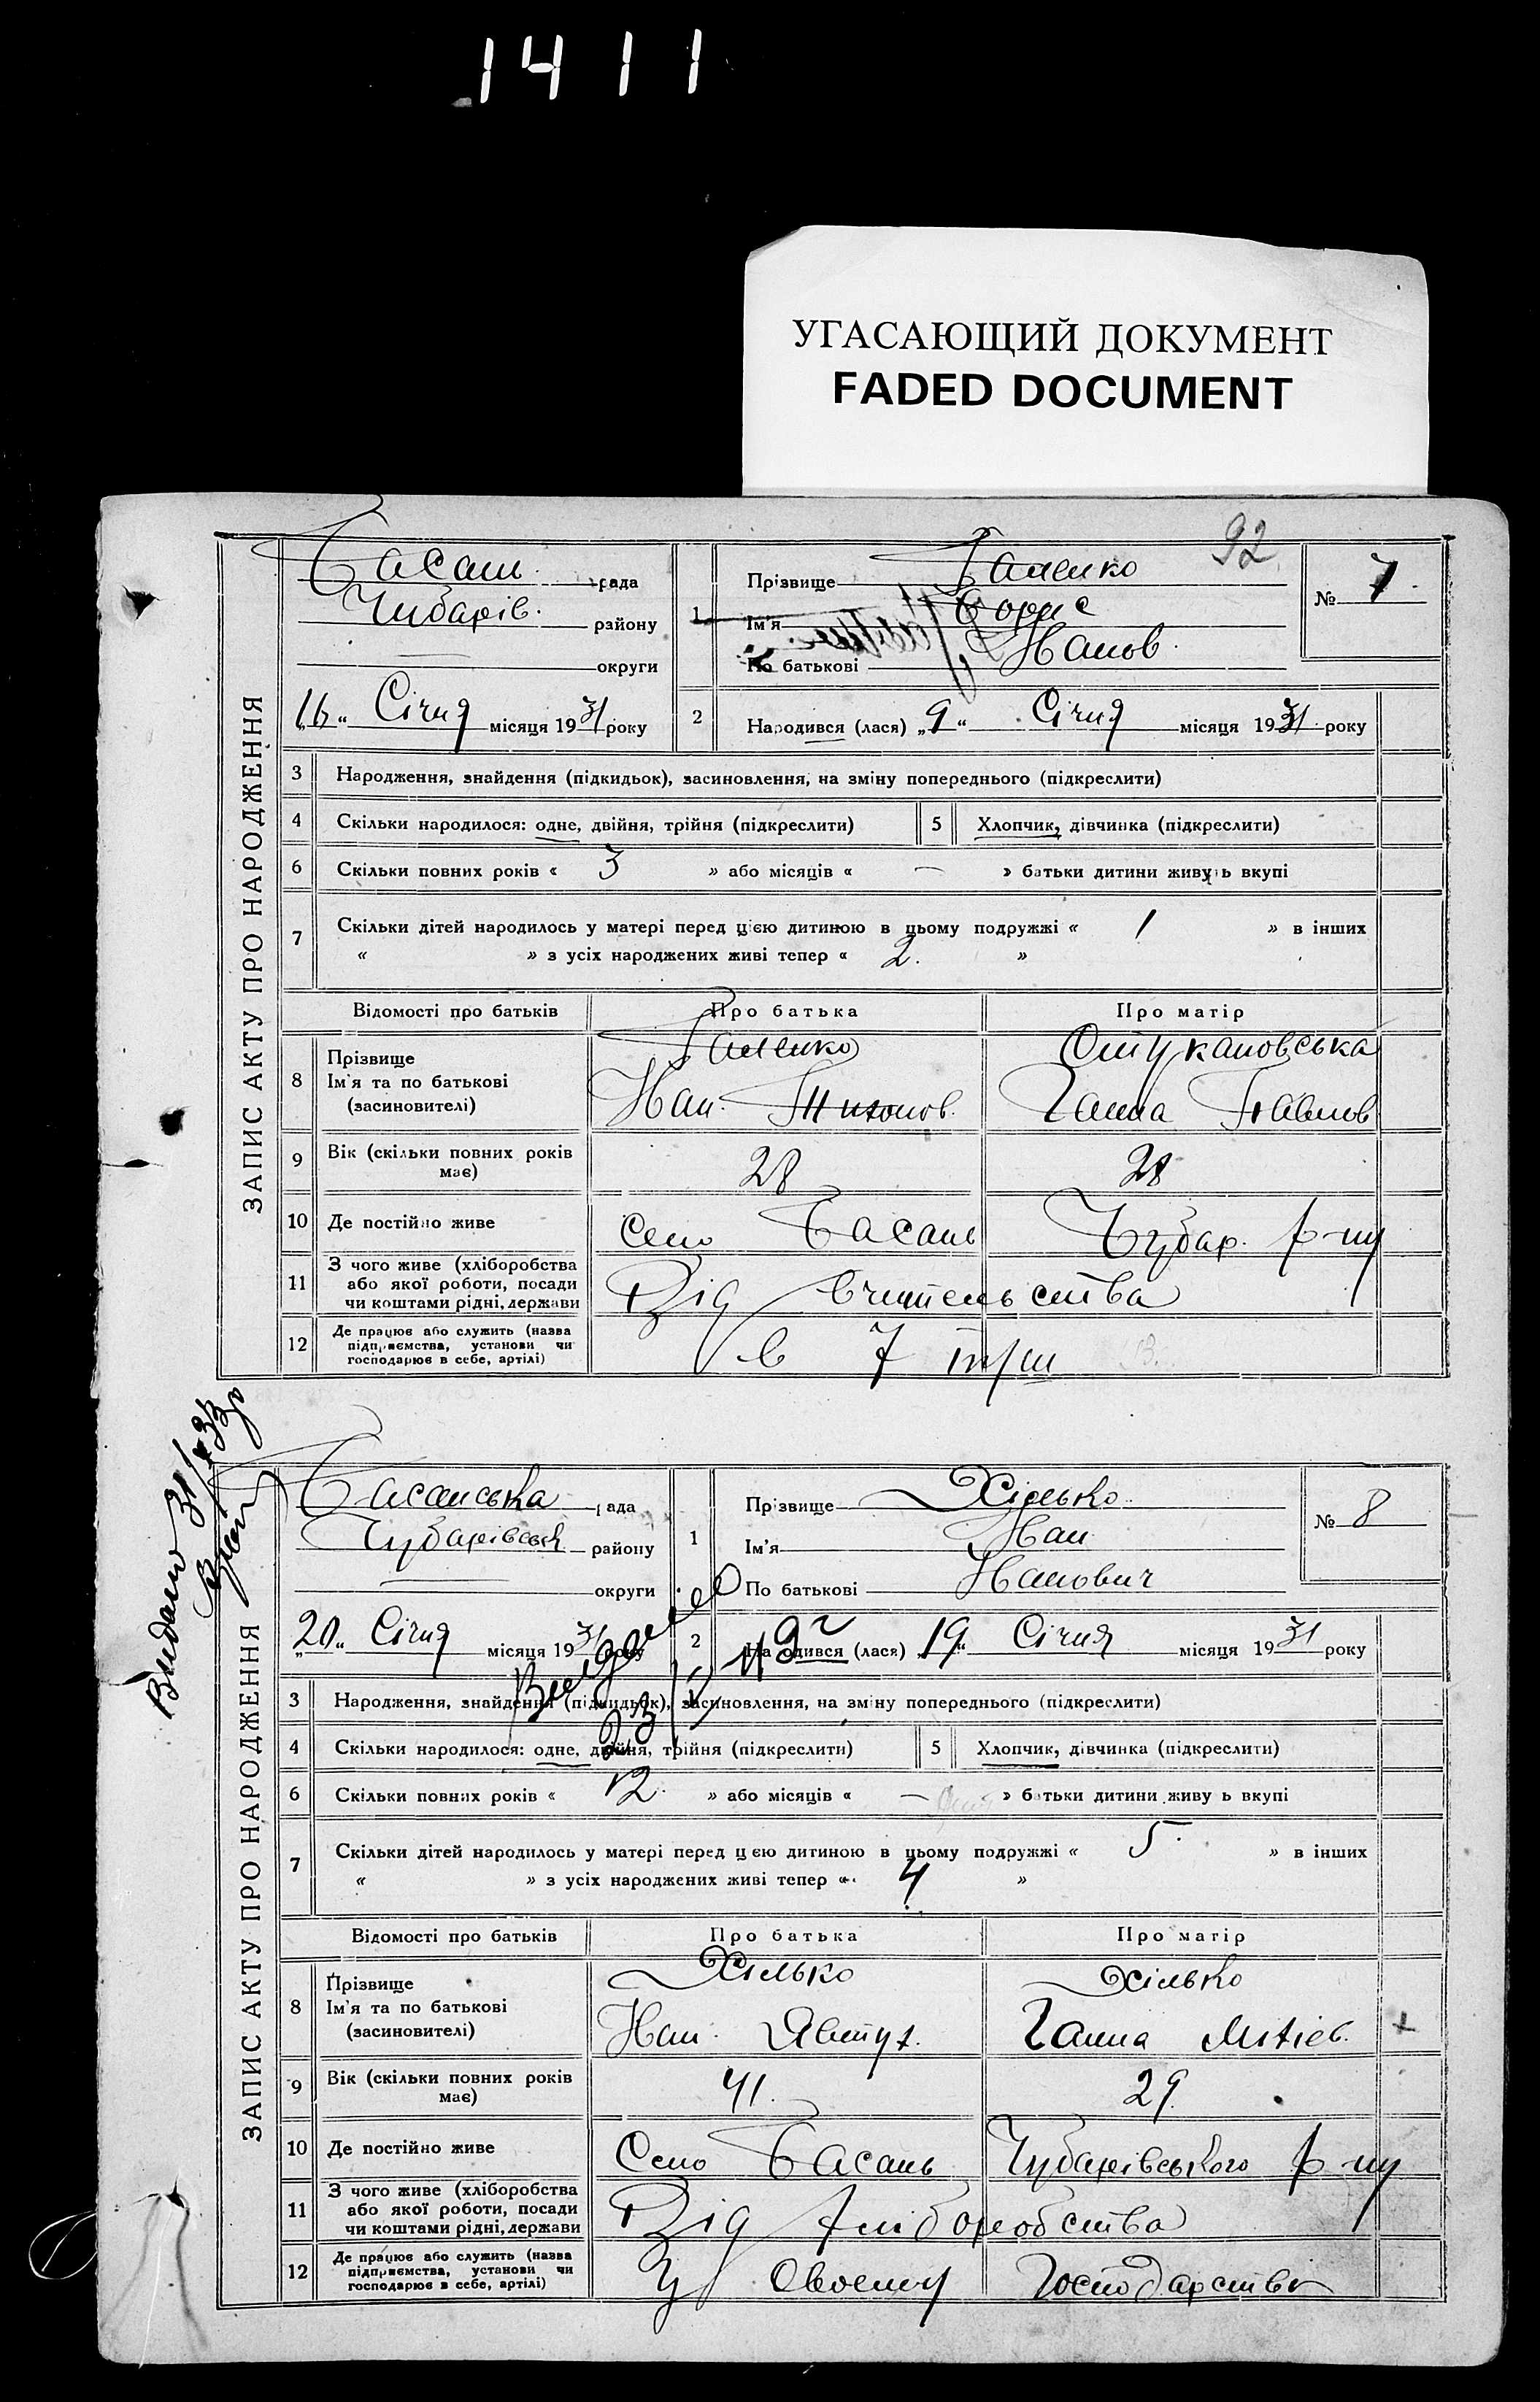 1411
УГАСАЮЩИЙ ДОКУМЕНТ
FADED DOCUMENT
92
ЗАПИС АКТУ ПРО НАРОДЖЕННЯ
Басань рада
Чубарів. району
округи
16 Січня місяця 1931 року
1 Прізвище Галенко
Ім'я Борис
По батькові Іванов.
№ 7
2 Народився (лася) „9“ Січня місяця 1931 року
3 Народження, знайдення (підкидьок), засиновлення, на зміну попереднього (підкреслити)
4 Скільки народилося: одне, двійня, трійня (підкреслити) 5 Хлопчик, дівчинка (підкреслити)
6 Скільки повних років « 3 » або місяців « — » батьки дитини живуть вкупі
7 Скільки дітей народилось у матері перед цією дитиною в цьому подружжі « 1 » в інших
« » з усіх народжених живі тепер « 2. »
Відомості про батьків Про батька Про матір
8 Прізвище
Ім'я та по батькові
(засиновителі)
Галенко
Іван. Тихонов.
Ганна Павлов
9 Вік (скільки повних років має) 28 28
10 Де постійно живе Село Басань Чубар. р-ну
11 З чого живе (хліборобства
або якої роботи, посади
чи коштами рідні, держави
Від вчительства
12 Де працює або служить (назва
підприємства, установи чи
господарює в себе, артілі)
в 7
ЗАПИС АКТУ ПРО НАРОДЖЕННЯ
Видано 31
Басанська рада
Чубарівськ району
округи
„20“ Січня місяця 1931 року
1 Прізвище Хілько
Ім'я Іван
По батькові Іванович
№ 8
2 Народився (лася) „19“ Січня місяця 1931 року
3 Народження, знайдення (підкидьок), засиновлення, на зміну попереднього (підкреслити)
4 Скільки народилося: одне, двійня, трійня (підкреслити) 5 Хлопчик, дівчинка (підкреслити)
6 Скільки повних років « 12 » або місяців « — » батьки дитини живу ь вкупі
7 Скільки дітей народилось у матері перед цією дитиною в цьому подружжі « 5 » в інших
« » з усіх народжених живі тепер « 4 »
Відомості про батьків Про батька Про матір
8 Прізвище
Ім'я та по батькові
(засиновителі)
Хілько
Іван. Явтух.
Хілько
Ганна
9 Вік (скільки повних років має) 41. 29.
10 Де постійно живе Село Басань Чубарівського р-ну
11 З чого живе (хліборобства
або якої роботи, посади
чи коштами рідні, держави
Від хліборобства
12 Де працює або служить (назва
підприємства, установи чи
господарює в себе, артілі)
У своєму господарстві